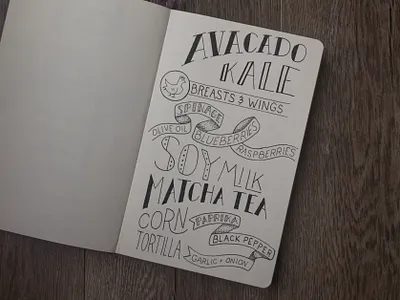 AVACADO
KALE
BREASTS & WINGS
SPINAGE
OLIVE OIL
BLUEBERRIES
RASPBERRIES
SOY MILK
MATCHA TEA
CORN
TORTILLA
PAPRIKA
BLACK PEPPER
GARLIC + ONION